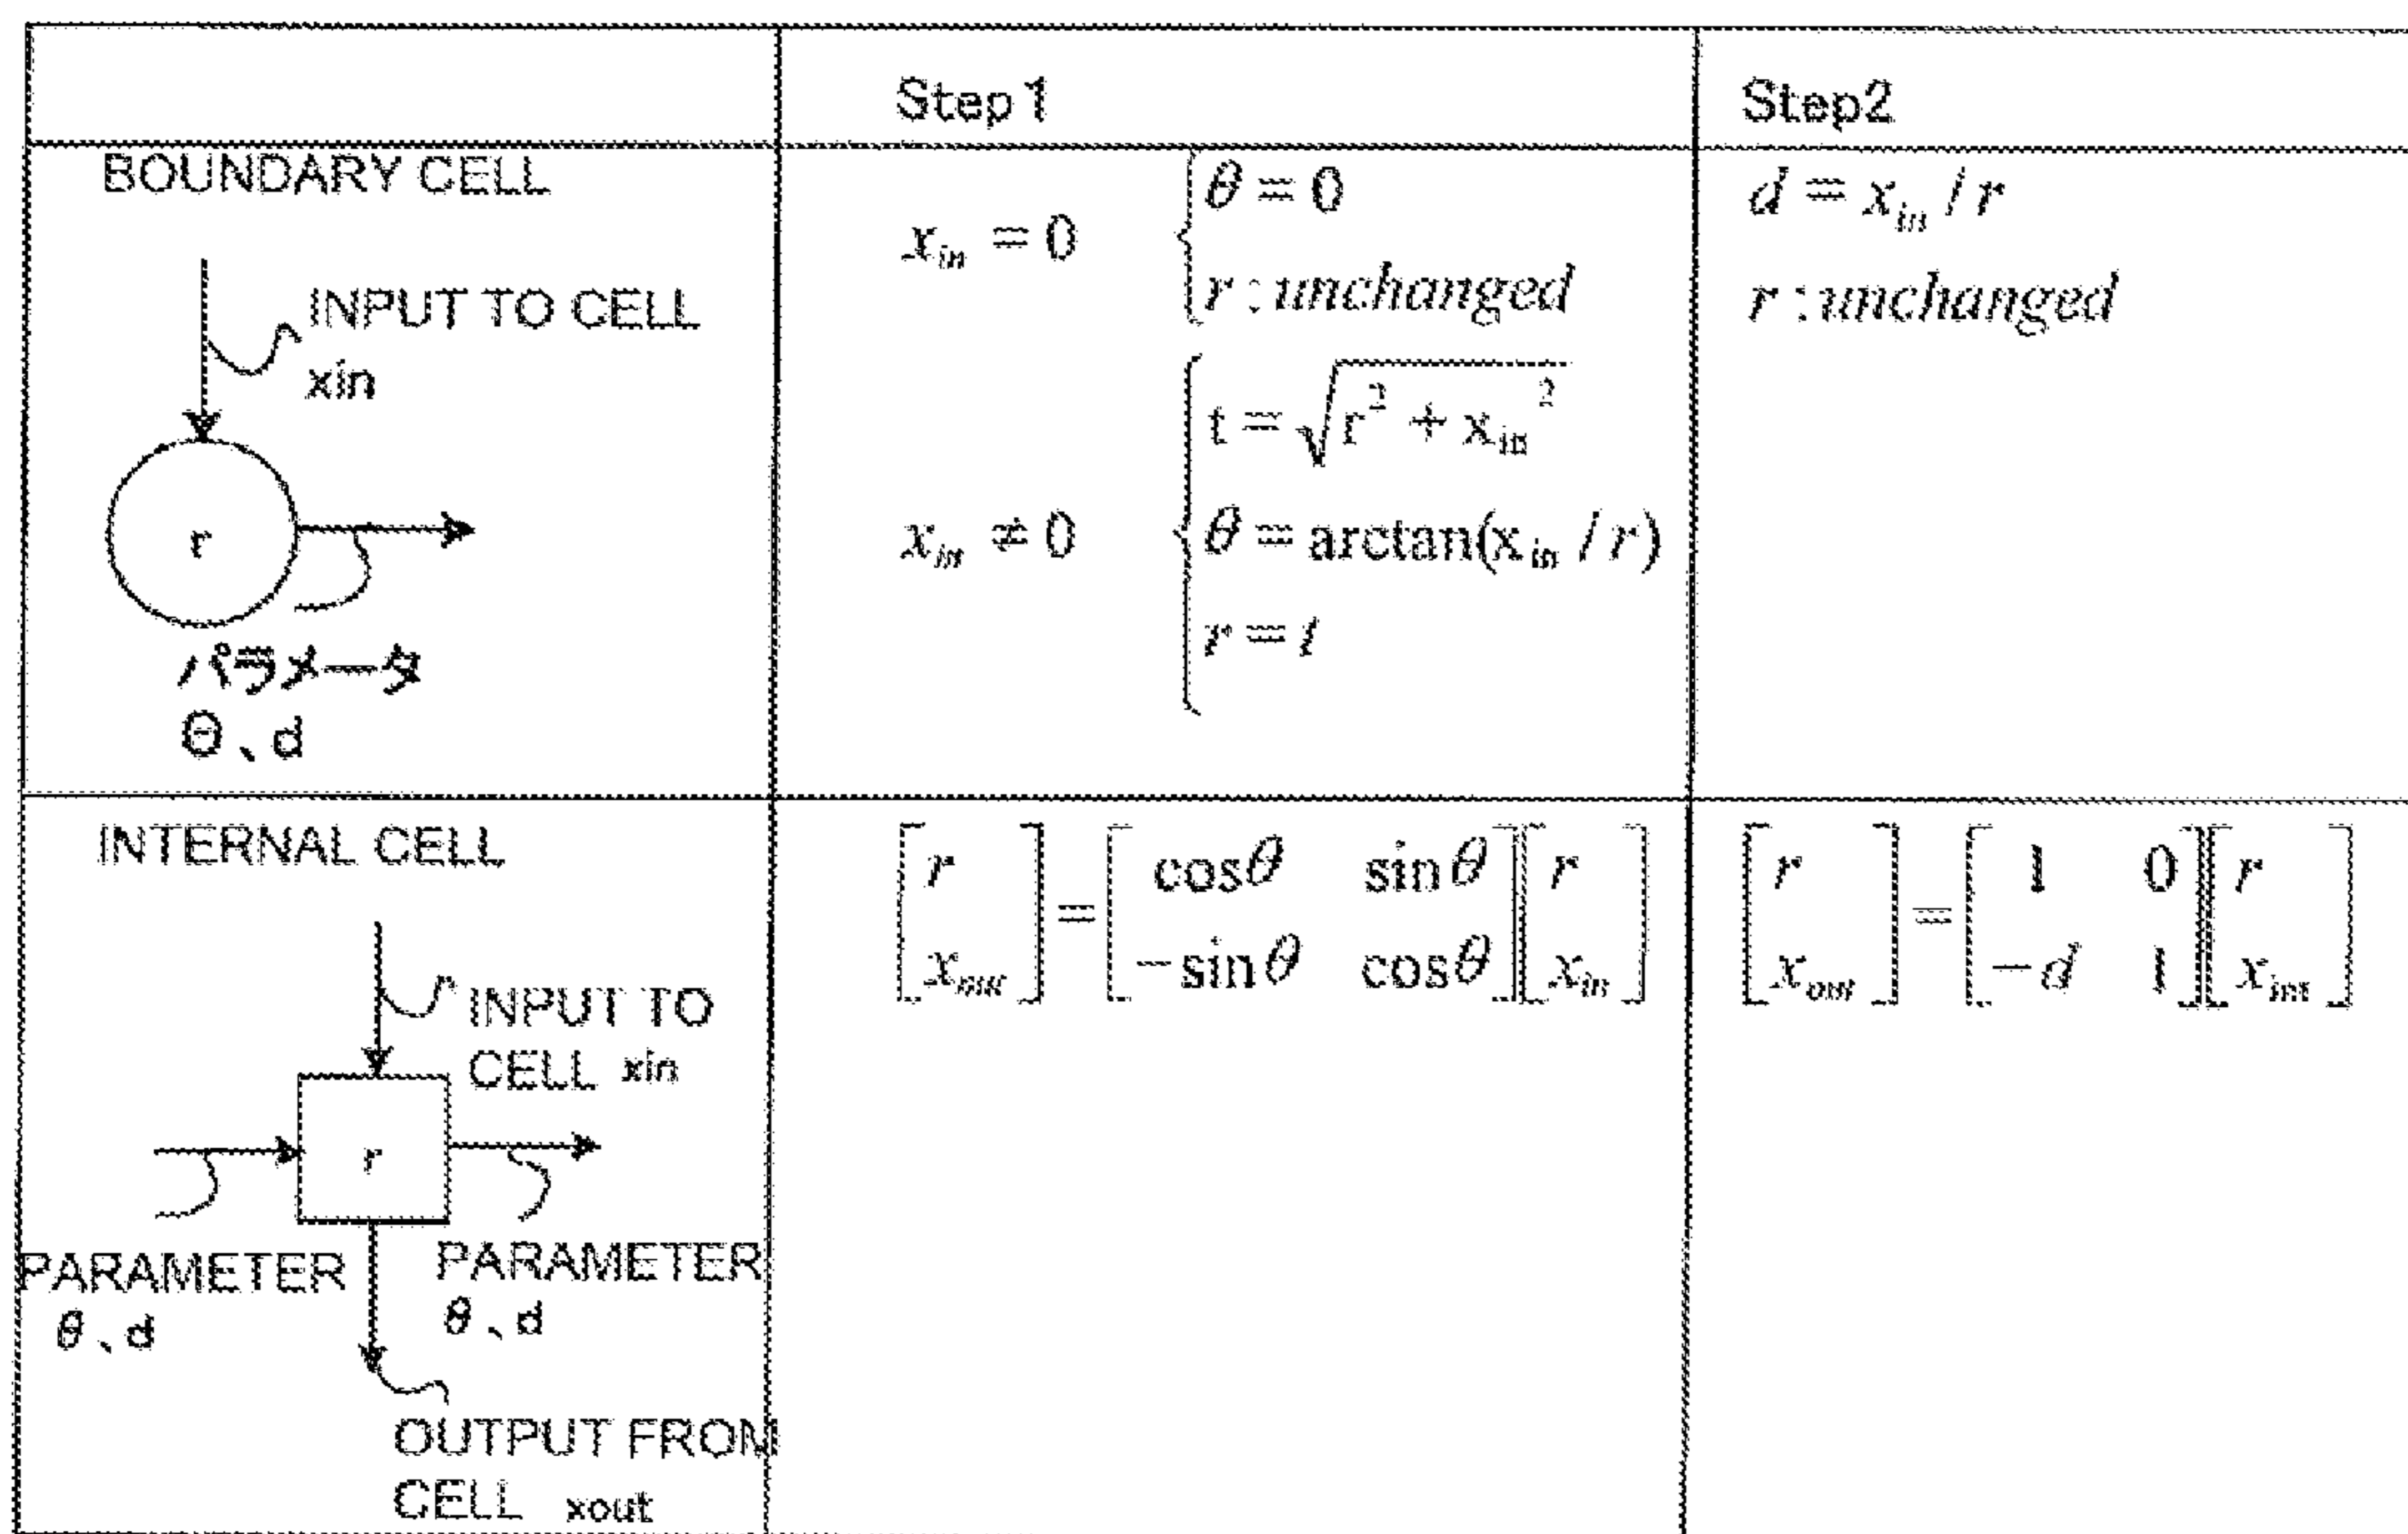 Step1
Step2
BOUNDARY CELL
INPUT TO CELL
xin
r
パラメータ
Θ、d
x_in = 0
θ = 0
r : unchanged
x_in ≠ 0
t = √(r² + x_in²)
θ = arctan(x_in / r)
r = t
d = x_in / r
r : unchanged
INTERNAL CELL
INPUT TO
CELL xin
r
PARAMETER
θ、d
PARAMETER
θ、d
OUTPUT FROM
CELL xout
[r x_out] = [cosθ sinθ -sinθ cosθ] [r x_in]
[r x_out] = [1 0 -d 1] [r x_int]